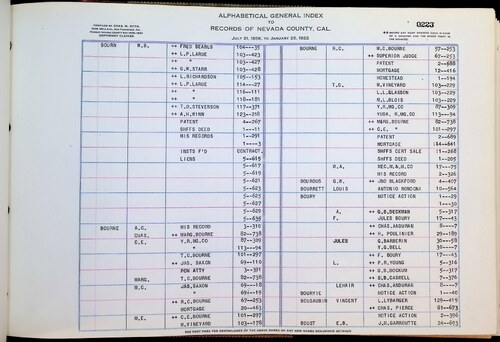 ALPHABETICAL GENERAL INDEX
TO
RECORDS OF NEVADA COUNTY, CAL.
JULY 21, 1856, TO JANUARY 25, 1922
0223
BOURN W.B. ++ FRED BEARLS 104---35
++ L.P.LARUE 103--423
++ " 103--427
++ G.W.STARR 103--428
++ L.RICHARDSON 105--153
++ L.P.LARUE 114--27
++ " 116--111
++ " 118--181
++ T.D.STEVENSON 117--371
++ A.H.WINN 123--218
PATENT 4--267
SHFFS DEED 1---11
HIS RECORDS 1--291
1----3
INSTS F'D CONTRACT.
LIENS 5--615
5--617
5--619
5--621
5--623
5--625
5--627
5--629
5--635
BOURNE A.C. HIS RECORD 3--310
CHAS. ++ MARG.BOURNE 82--738
C.E. Y.R.MG.CO 87--309
113---94
T.C.BOURNE 101--297
++ JAS. SAXON 69--110
POW ATTY 3--391
MARG. T.C.BOURNE 82--738
M.C. JAS.SAXON 69---18
69---19
++ R.C.BOURNE 67--253
MORTGAGE 20--463
M.E. ++ C.E.BOURNE 101--297
W.VINEYARD 103--178
BOURNE R.C. M.C.BOURNE 57--253
++ SUPERIOR JUDGE 67--253
PATENT 2--688
MORTGAGE 12--416
HOMESTEAD 1--194
T.C. W.VINEYARD 103--229
L.L.GLASSON 103--229
M.L.BLOIS 103--229
Y.R.MG.CO 87--309
YUBA. R.MG.CO 113---94
++ MARG.BOURNE 82--738
++ C.E. " 101--297
PATENT 2--689
MORTGAGE 44--641
SHFFS CERT SALE 1--268
SHFFS DEED 1--205
W.A. REC.W.& H.CO 17---75
HIS RECORD 2--326
BOUROUS G.R. ++ JNO BLACKFORD 44--407
BOURRETT LOUIS ANTONIO RONCONI 10--564
BOURY NOTICE ACTION 1---29
1---30
A. ++ G.B.DEEKMAN 5--317
F. JULES BOURY 17---43
++ CHAS.ANDURAN 8----7
++ H. POULINIER 12--189
JULES G.BARBERIN 30---58
Y.G.BELL 30----7
++ F. BOURY 17---43
L. ++ P.R.YOUNG 5--316
++ G.B.DECKUM 5--317
++ G.B.CASNELL 7--376
LEHAIR ++ CHAS.ANDURAN 8----7
BOURYIE NOTICE ACTION 1---40
BOUSAUBIN VINCENT L.LYBARGER 129--419
++ CHAS. PIERCE 81--673
NOTICE ACTION 2--396
BOUST E.B. J.H.GARROUTTE 24--693